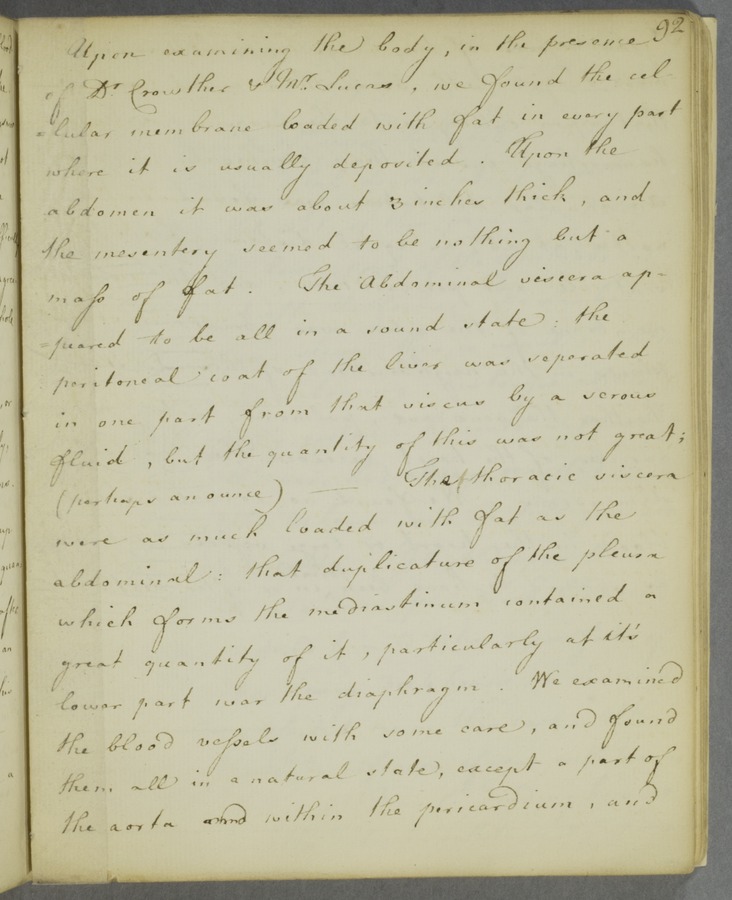 92
Upon examining the body, in the presence
of Dr Crowther & Mr. Lucas, we found the cel-
=lular membrane loaded with fat in every part
where it is usually deposited. Upon the
abdomen it was about 3 inches thick, and
the mesentery seemed to be nothing but a
mass of fat. The Abdominal viscera ap-
=peared to be all in a sound state: the
peritoneal coat of the liver was seperated
in one part from that viscus by a serous
fluid, but the quantity of this was not great;
(perhaps an ounce) — The thoracic viscera
were as much loaded with fat as the
abdominal: that duplicature of the pleura
which forms the mediastinum contained a
great quantity of it, particularly at it's
lower part near the diaphragm. We examined
the blood vessels with some care, and found
them all in a natural state, except a part of
the aorta within the pericardium, and